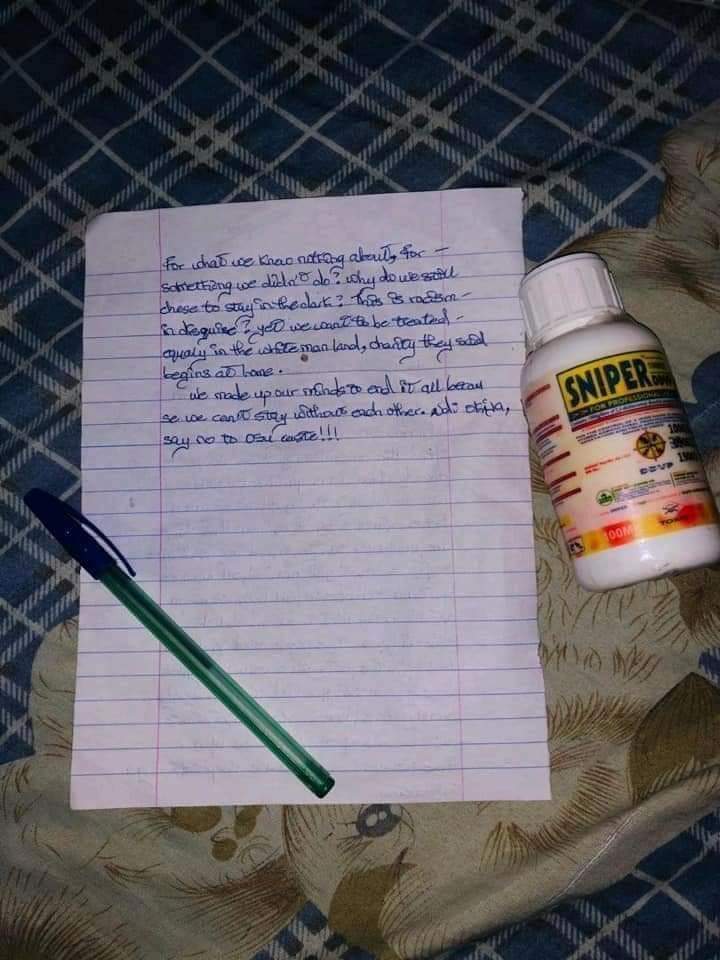 For what we know nothing about, for -
something we didn't do? why do we still
chose to stay in the dark? This is racism -
in disguise? yet we want to be treated -
equaly in the white man land, charity they said
begins at home.
we made up our minds to end it all becau
se we can't stay without each other. Ndi
say no to osu caste!!!
SNIPER
FOR PROFESSIONAL
DDVP
100M